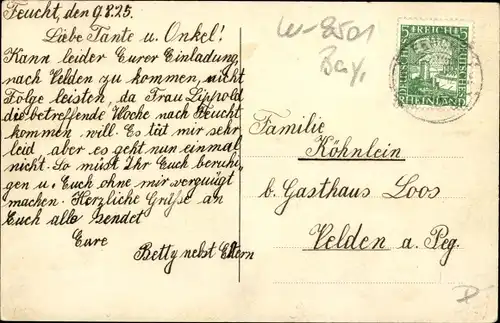 Feucht, den 9.8.25.
Liebe Tante u. Onkel!
Kann leider Eurer Einladung,
nach Velden zu kommen, nicht
Folge leisten, da Frau Lippold
die betreffende Woche nach Feucht
kommen will. Es tüt mir sehr
leid aber es geht nun einmal
nicht. So müst Ihr Euch beruhi-
gen u. Euch ohne mir vergnügt
machen. Herzliche Grüße an
Euch alle sendet
Eure
Betty nebst Eltern
W-8501
Bay.
5 REICH 5
RHEINLAND
Familie
Köhnlein
b. Gasthaus Loos
Velden a. Peg.